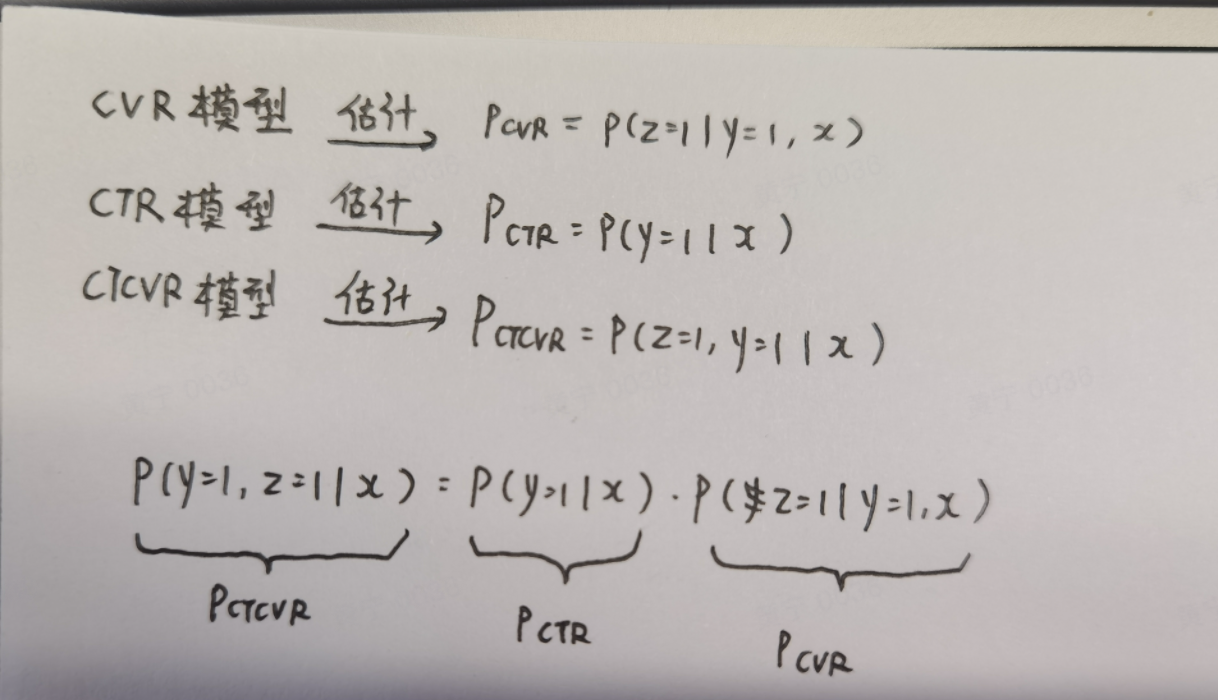 CVR模型 估计→ PCVR = P(z=1|y=1, x)
CTR模型 估计→ PCTR = P(y=1|x)
CTCVR模型 估计→ PCTCVR = P(z=1, y=1|x)
P(y=1, z=1|x) = P(y=1|x) · P(z=1|y=1, x)
PCTCVR PCTR PCVR